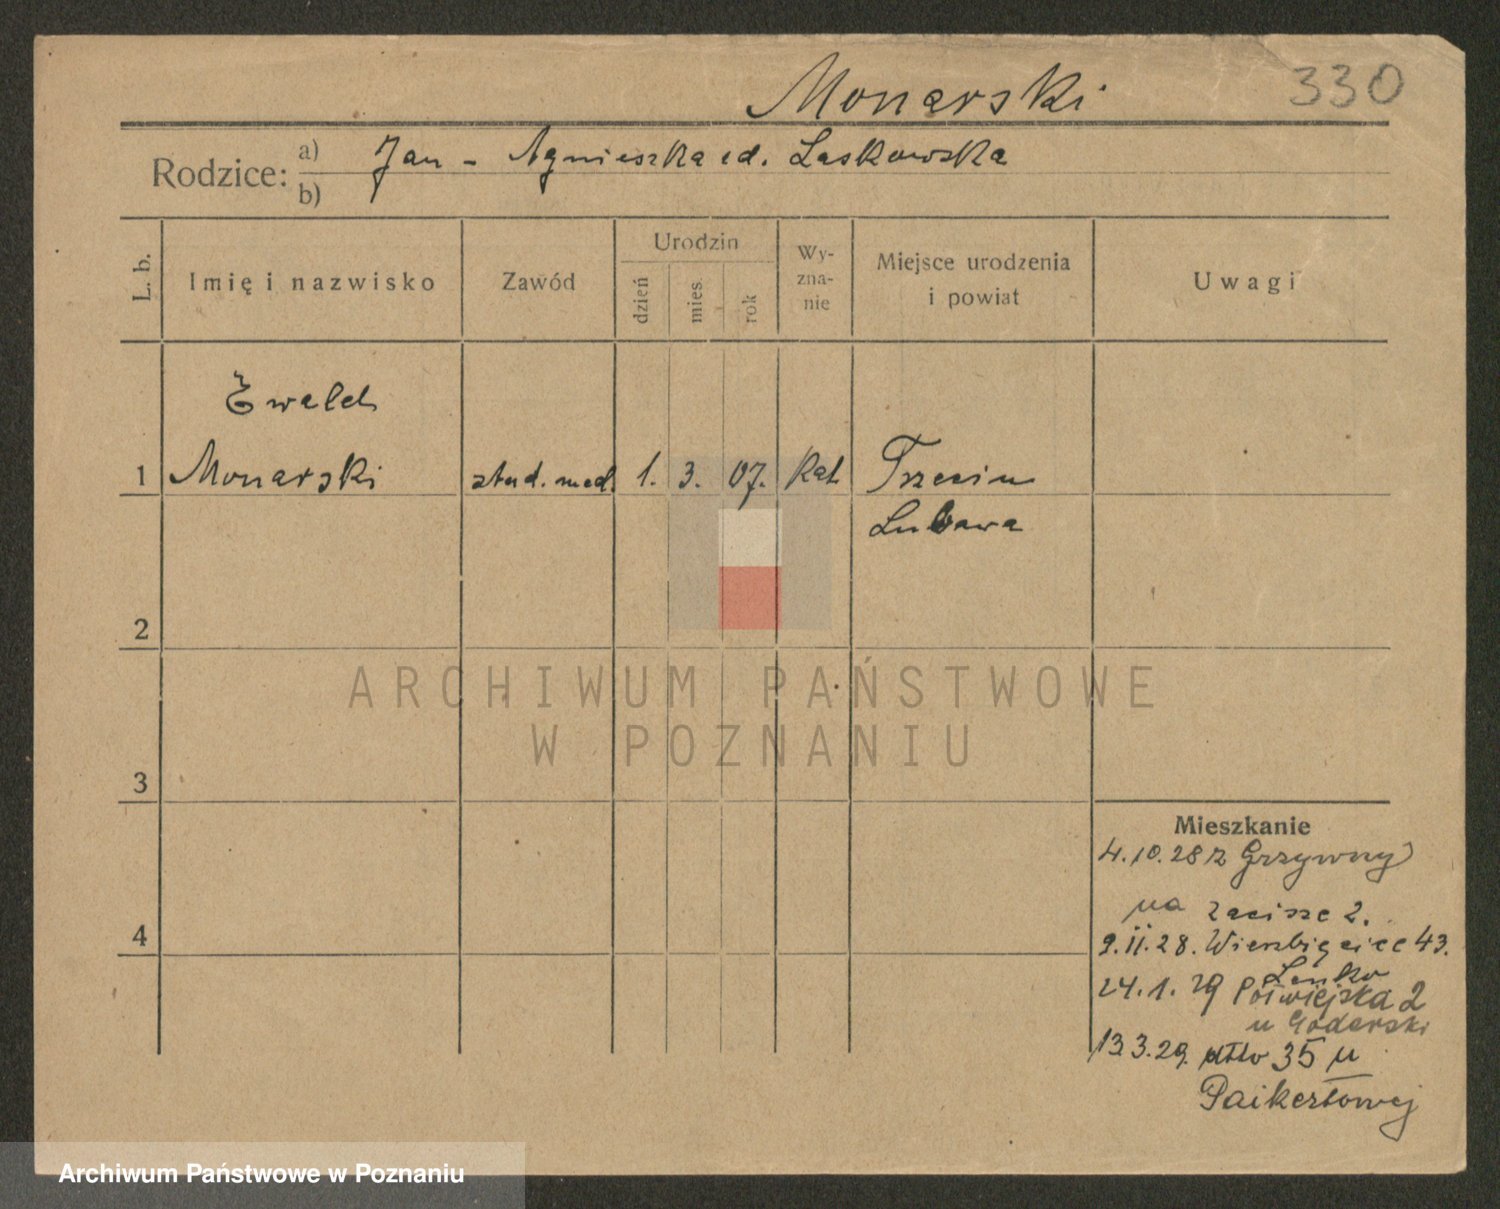 Monarski 330
Rodzice: a) Jan - Agnieszka
b)
L. b. Imię i nazwisko Zawód Urodzin dzień mies. rok Wy-zna-nie Miejsce urodzenia i powiat Uwagi
Ewald
1 Monarski stud. med. 1. 3. 07. kat Trzecin
Lubawa
2
ARCHIWUM PAŃSTWOWE
W POZNANIU
3
Mieszkanie
4.10.28 z Grzywny
na Zacisze 2.
4
9.11.28. Wierzbięcice 43.
24.1.29 Poświejska 2
u Goderski
13.3.29. dtto 35 u
Paikertowej
Archiwum Państwowe w Poznaniu